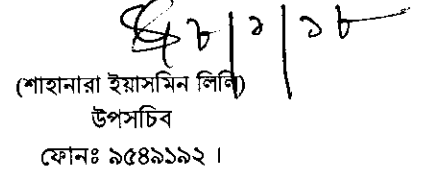 ৮|১|১৮
(শাহানারা ইয়াসমিন লিলি)
উপসচিব
ফোনঃ ৯৫৪৯১৯২ ।